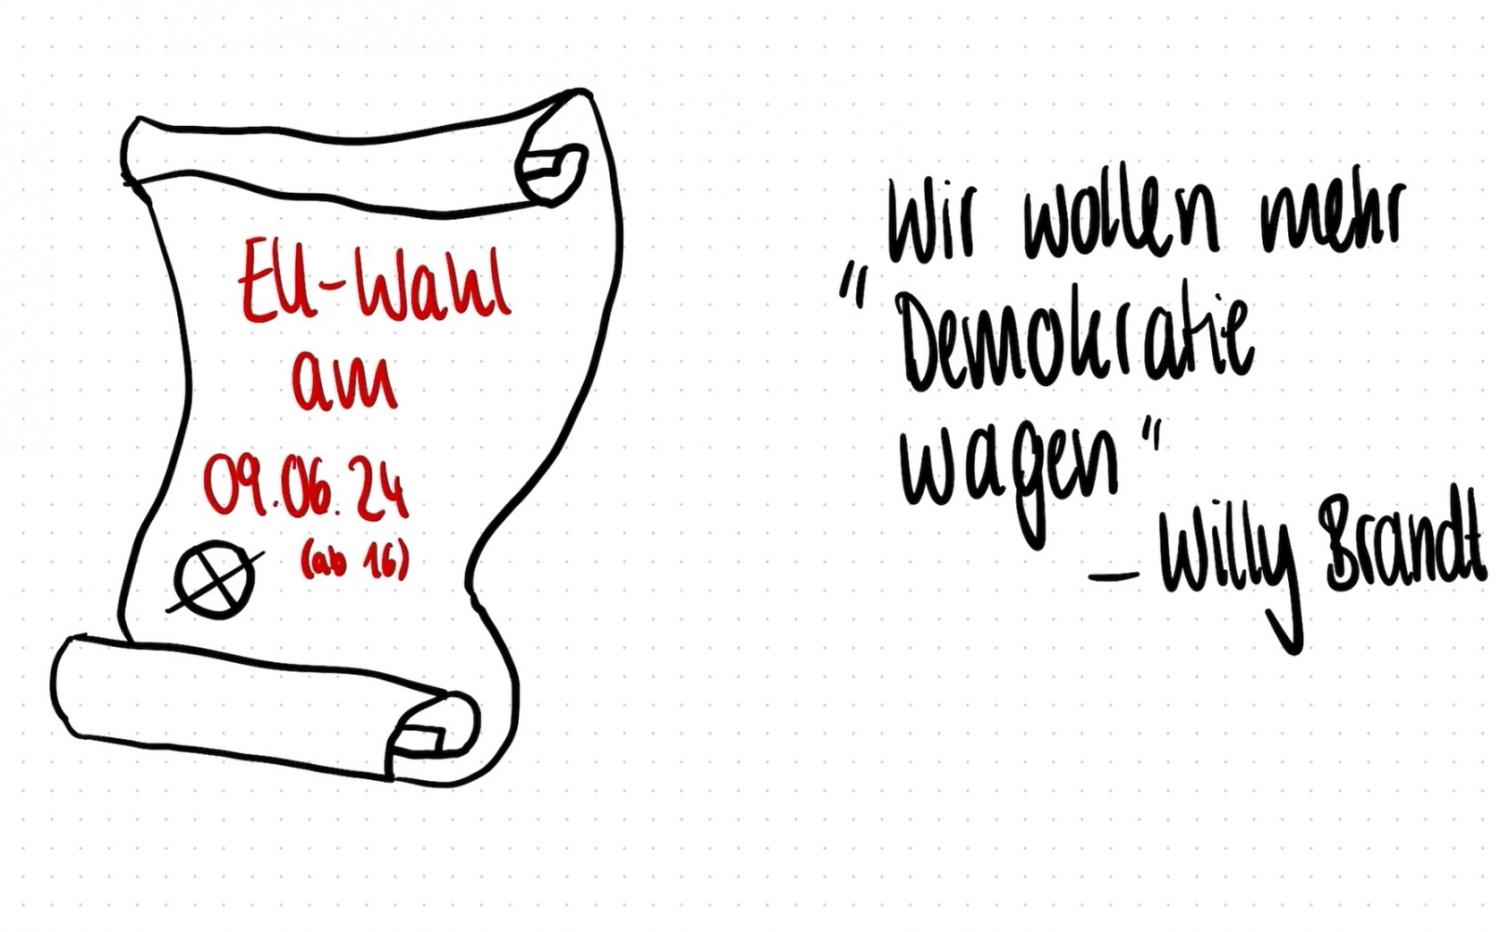 EU-Wahl
am
09.06.24
(ab 16)
"Wir wollen mehr
Demokratie
wagen"
– Willy Brandt